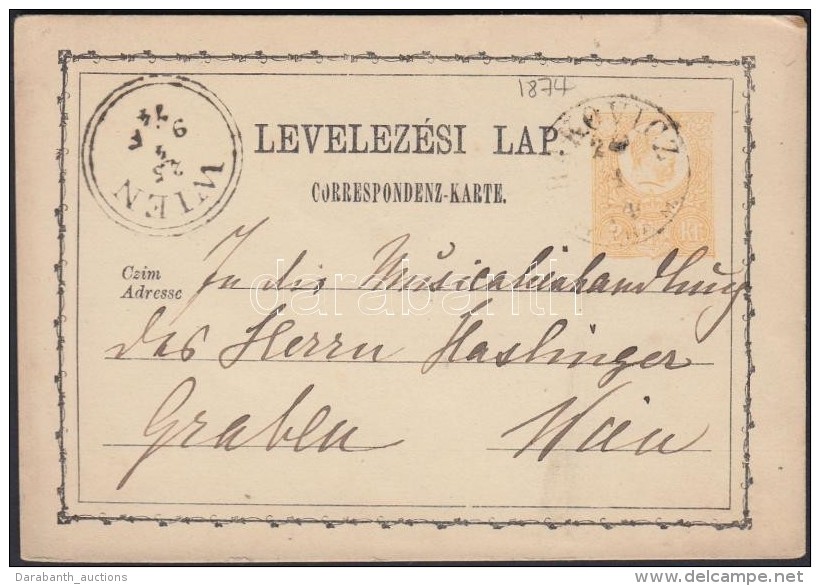 1874
LEVELEZÉSI LAP
CORRESPONDENZ-KARTE.
WIEN
25
4
74
KR
Czim
Adresse
In die Musicalienhandlung
des Herrn Haslinger
Graben Wien
darabanth
Darabanth_auctions
delcampe.net